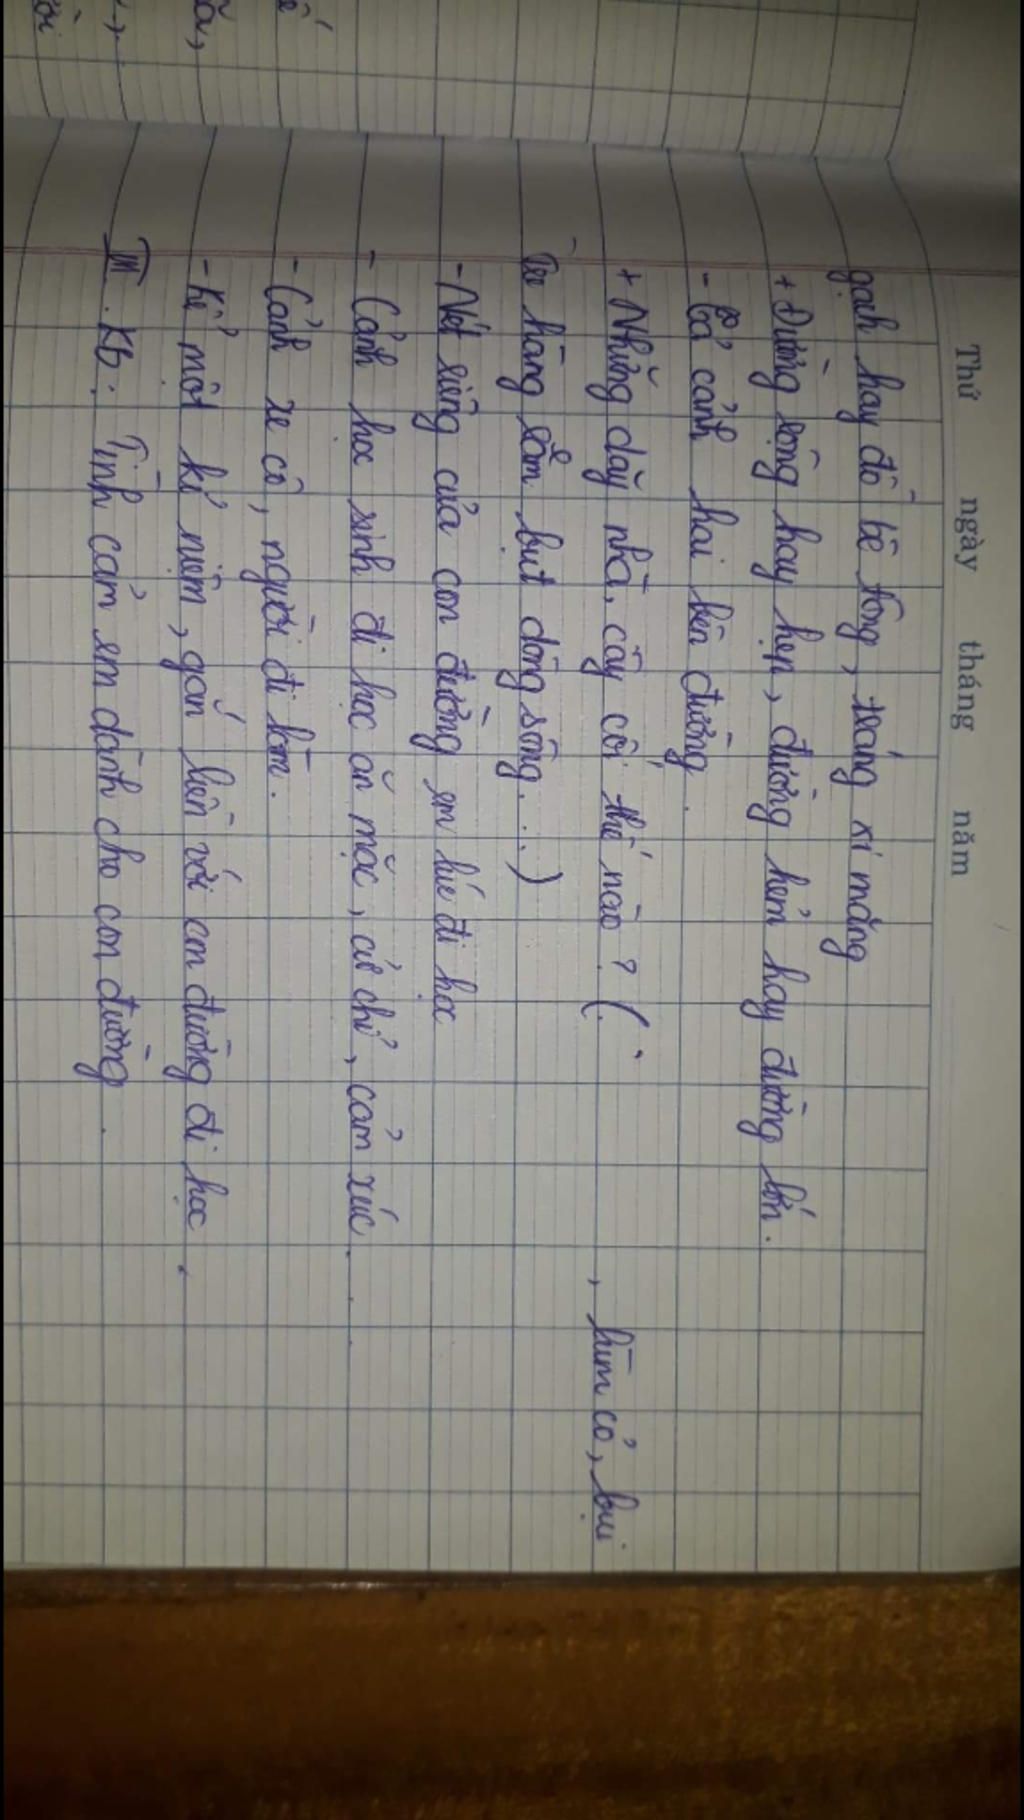 Thứ ngày tháng năm
gạch hay đổ bê tông, tráng xi măng
+ Đường rộng hay hẹp, đường hẻm hay đường lớn.
- Tả cảnh hai bên đường.
+ Những dãy nhà, cây cối thế nào? ( , lùm cỏ, bụi
tre hàng râm bụt dòng sông...)
- Nét riêng của con đường em lúc đi học
- Cảnh học sinh đi học ăn mặc, cử chỉ, cảm xúc...
- Cảnh xe cộ, người đi làm.
- Kể một kỉ niệm, gắn liền với con đường đi học.
III. KB: Tình cảm em dành cho con đường.